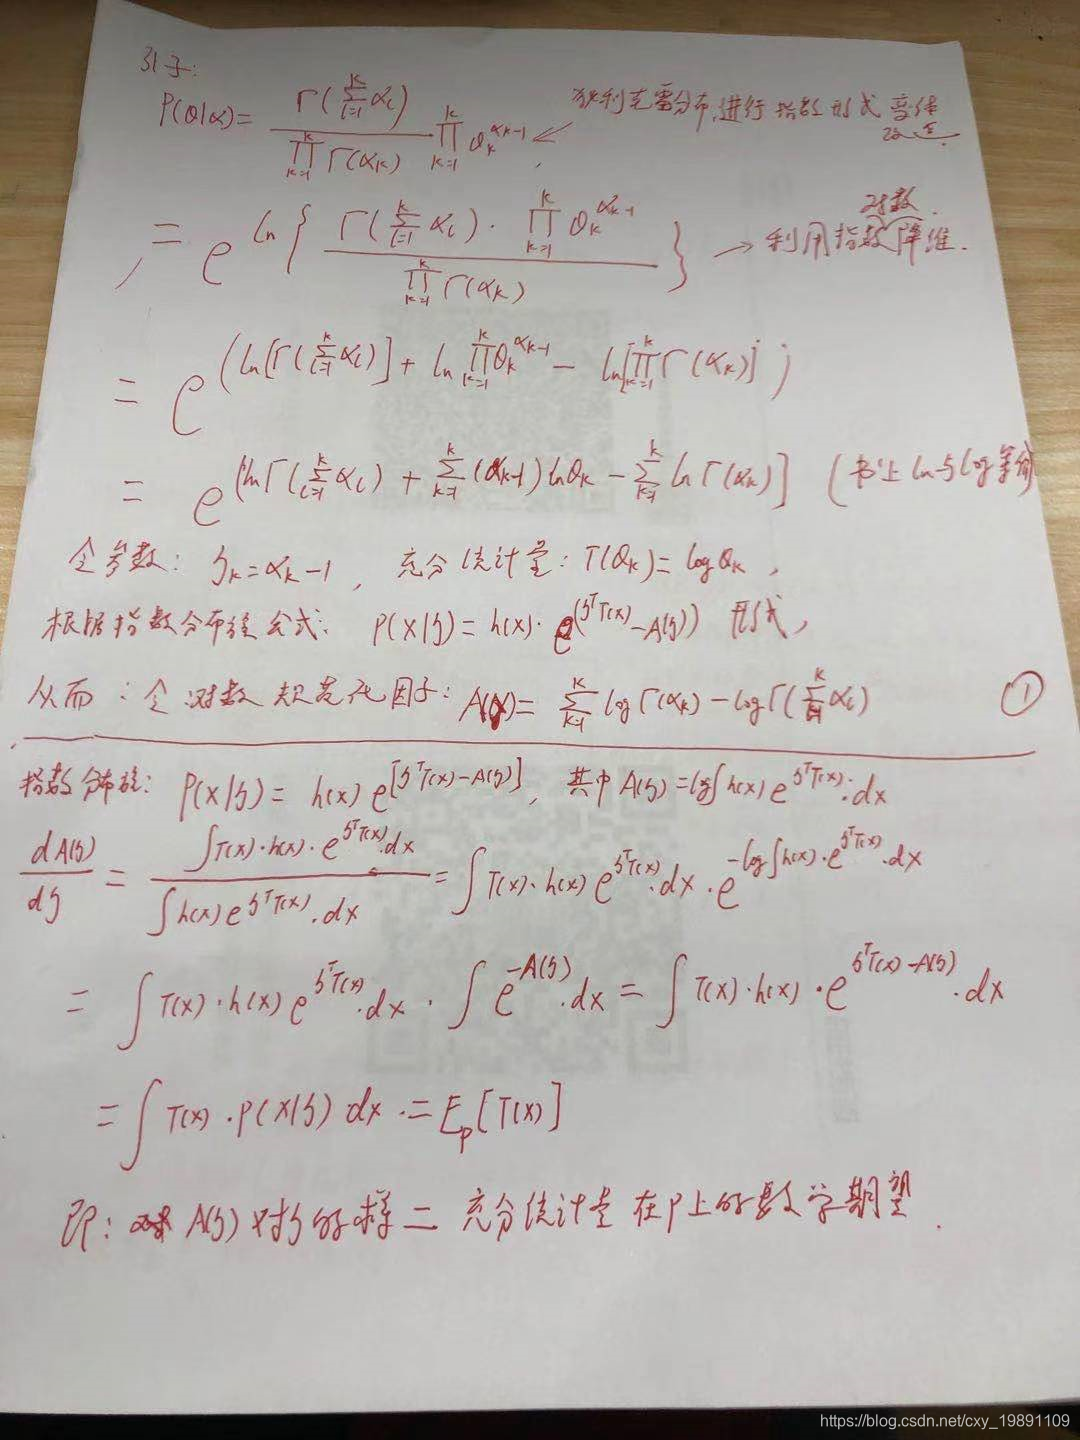 引子:
P(θ|α) = Γ(∑_{l=1}^{K} α_l) / ∏_{k=1}^{K} Γ(α_k) ∏_{k=1}^{K} θ_k^{α_k-1} ← 狄利克雷分布,进行指数形式变体
改造.
= e^{ln{ Γ(∑_{l=1}^{K} α_l)·∏_{k=1}^{K} θ_k^{α_k-1} / ∏_{k=1}^{K} Γ(α_k) }} → 利用指数降维.
对数.
= e^{(ln[Γ(∑_{l=1}^{K} α_l)] + ln ∏_{k=1}^{K} θ_k^{α_k-1} - ln[∏_{k=1}^{K} Γ(α_k)])}
= e^{[ln Γ(∑_{l=1}^{K} α_l) + ∑_{k=1}^{K} (α_k-1) ln θ_k - ∑_{k=1}^{K} ln Γ(α_k)]} (书上 ln 与 log 等价)
令参数: ζ_k = α_k-1, 充分统计量: T(θ_k) = log θ_k,
根据指数分布族公式: P(x|ζ) = h(x)·e^{(ζ^T T(x) - A(ζ))} 形式,
从而: 令对数规范化因子: A(α) = ∑_{k=1}^{K} log Γ(α_k) - log Γ(∑_{l=1}^{K} α_l) ①
指数分布族: P(x|ζ) = h(x) e^{[ζ^T T(x) - A(ζ)]}, 其中 A(ζ) = log∫h(x) e^{ζ^T T(x)}·dx
dA(ζ)/dζ = ∫T(x)·h(x)·e^{ζ^T T(x)}·dx / ∫h(x) e^{ζ^T T(x)}·dx = ∫T(x)·h(x) e^{ζ^T T(x)}·dx · e^{-log∫h(x)·e^{ζ^T T(x)}·dx}
= ∫T(x)·h(x) e^{ζ^T T(x)}·dx · ∫e^{-A(ζ)}·dx = ∫T(x)·h(x)·e^{ζ^T T(x) - A(ζ)}·dx
= ∫T(x)·P(x|ζ) dx · = E_p[T(x)]
即: A(ζ) 对ζ的求导 = 充分统计量在P上的数学期望.
https://blog.csdn.net/cxy_19891109